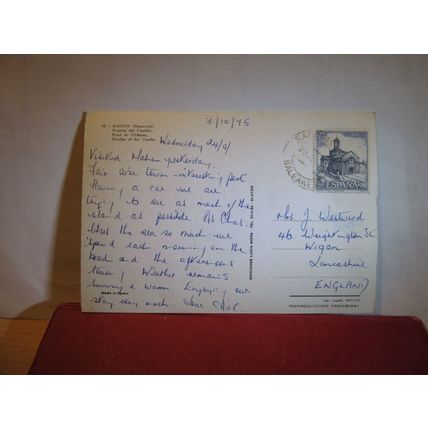 3/10/75
MAHON (Menorca)
Puente del Castillo
Pont du Château
Bridge of the Castle
Wednesday 24/9/
Visited Mahon yesterday.
Fair size town - interesting port.
Having a car we are
trying to see as much of the
island as possible. As Chas.
likes the sea so much we
spend each morning on the
beach and the afternoons
touring. Weather remains
sunny & warm. Enjoying our
stay very much. Love
Made in Spain
EDICIONES
BALEARE
ESPAÑA
Mrs J. Westwood
46. Wrightington St
Wigan
Lancashire
ENGLAND
(REPRODUCTION PROHIBIDA)